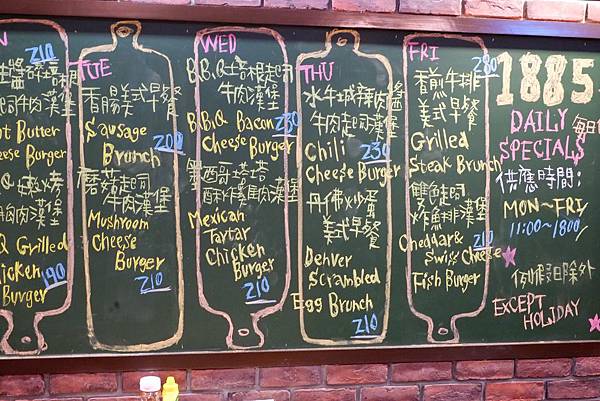 N
210
起司牛肉漢堡
Butter
Cheese Burger
Grilled
Chicken
Burger
190
TUE
香腸美式早餐
Sausage
Brunch
200
蘑菇起司
牛肉漢堡
Mushroom
Cheese
Burger
210
WED
B.B.Q培根起司
牛肉漢堡
B.B.Q Bacon
Cheese Burger
230
墨西哥塔塔
酥炸雞肉漢堡
Mexican
Tartar
Chicken
Burger
210
THU
水牛城辣肉醬
牛肉起司漢堡
Chili
Cheese Burger
230
丹佛炒蛋
美式早餐
Denver
Scrambled
Egg Brunch
210
FRI
280
香煎牛排
美式早餐
Grilled
Steak Brunch
雙魚起司
炸魚排漢堡
210
Cheddar &
Swiss Cheese
Fish Burger
1885
DAILY 每日
SPECIALS
供應時間:
MON~FRI
11:00~18:00
例假日除外
EXCEPT
HOLIDAY